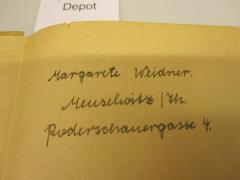 Depot
Margarete Weidner.
Meuselwitz / Th.
Roderschauergasse 4.